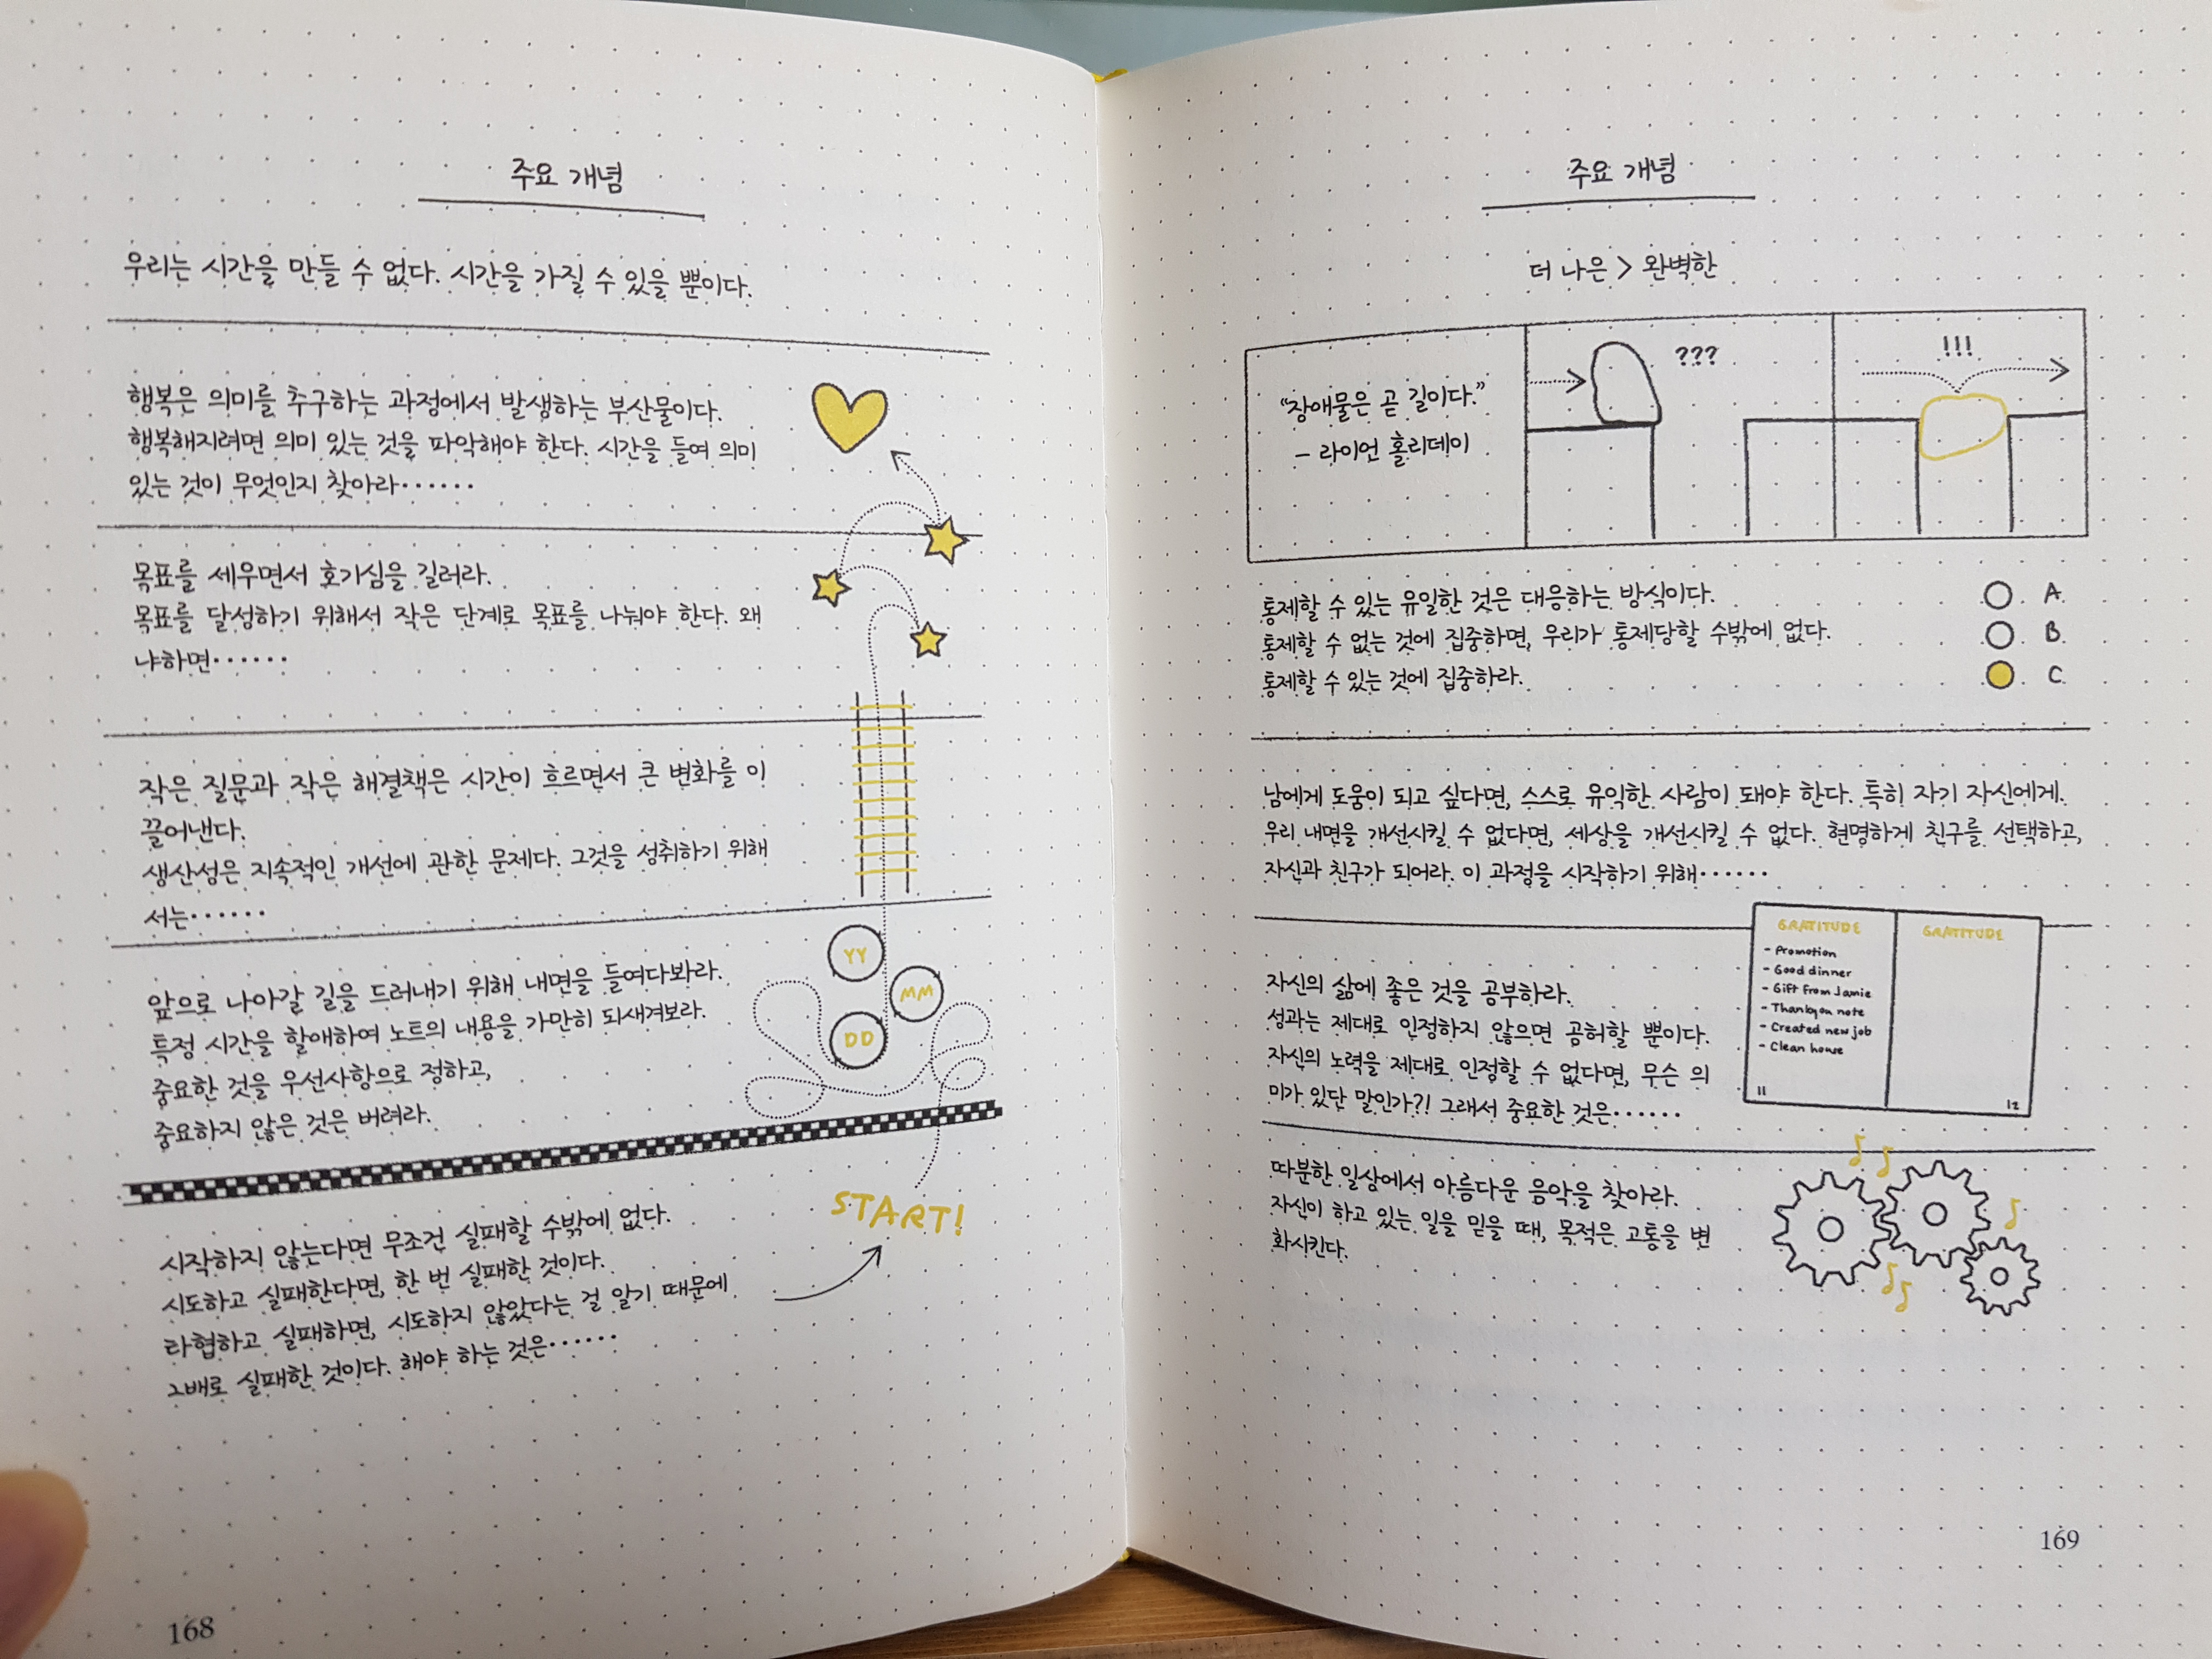 주요 개념
우리는 시간을 만들 수 없다. 시간을 가질 수 있을 뿐이다.
행복은 의미를 추구하는 과정에서 발생하는 부산물이다.
행복해지려면 의미 있는 것을 파악해야 한다. 시간을 들여 의미
있는 것이 무엇인지 찾아라……
목표를 세우면서 호기심을 길러라.
목표를 달성하기 위해서 작은 단계로 목표를 나눠야 한다. 왜
냐하면……
작은 질문과 작은 해결책은 시간이 흐르면서 큰 변화를 이
끌어낸다.
생산성은 지속적인 개선에 관한 문제다. 그것을 성취하기 위해
서는……
앞으로 나아갈 길을 드러내기 위해 내면을 들여다봐라.
특정 시간을 할애하여 노트의 내용을 가만히 되새겨보라.
중요한 것을 우선사항으로 정하고,
중요하지 않은 것은 버려라.
YY
MM
DD
시작하지 않는다면 무조건 실패할 수밖에 없다.
시도하고 실패한다면, 한 번 실패한 것이다.
타협하고 실패하면, 시도하지 않았다는 걸 알기 때문에
그배로 실패한 것이다. 해야 하는 것은……
START!
168
주요 개념
더 나은 > 완벽한
"장애물은 곧 길이다."
- 라이언 홀리데이
???
!!!
통제할 수 있는 유일한 것은 대응하는 방식이다.
통제할 수 없는 것에 집중하면, 우리가 통제당할 수밖에 없다.
통제할 수 있는 것에 집중하라.
A
B
C
남에게 도움이 되고 싶다면, 스스로 유익한 사람이 돼야 한다. 특히 자기 자신에게.
우리 내면을 개선시킬 수 없다면, 세상을 개선시킬 수 없다. 현명하게 친구를 선택하고,
자신과 친구가 되어라. 이 과정을 시작하기 위해……
자신의 삶에 좋은 것을 공부하라.
성과는 제대로 인정하지 않으면 공허할 뿐이다.
자신의 노력을 제대로 인정할 수 없다면, 무슨 의
미가 있단 말인가?! 그래서 중요한 것은……
GRATITUDE
- Promotion
- Good dinner
- Gift from Jamie
- Thankyou note
- Created new job
- Clean house
11
GRATITUDE
12
따분한 일상에서 아름다운 음악을 찾아라.
자신이 하고 있는 일을 믿을 때, 목적은 고통을 변
화시킨다.
169